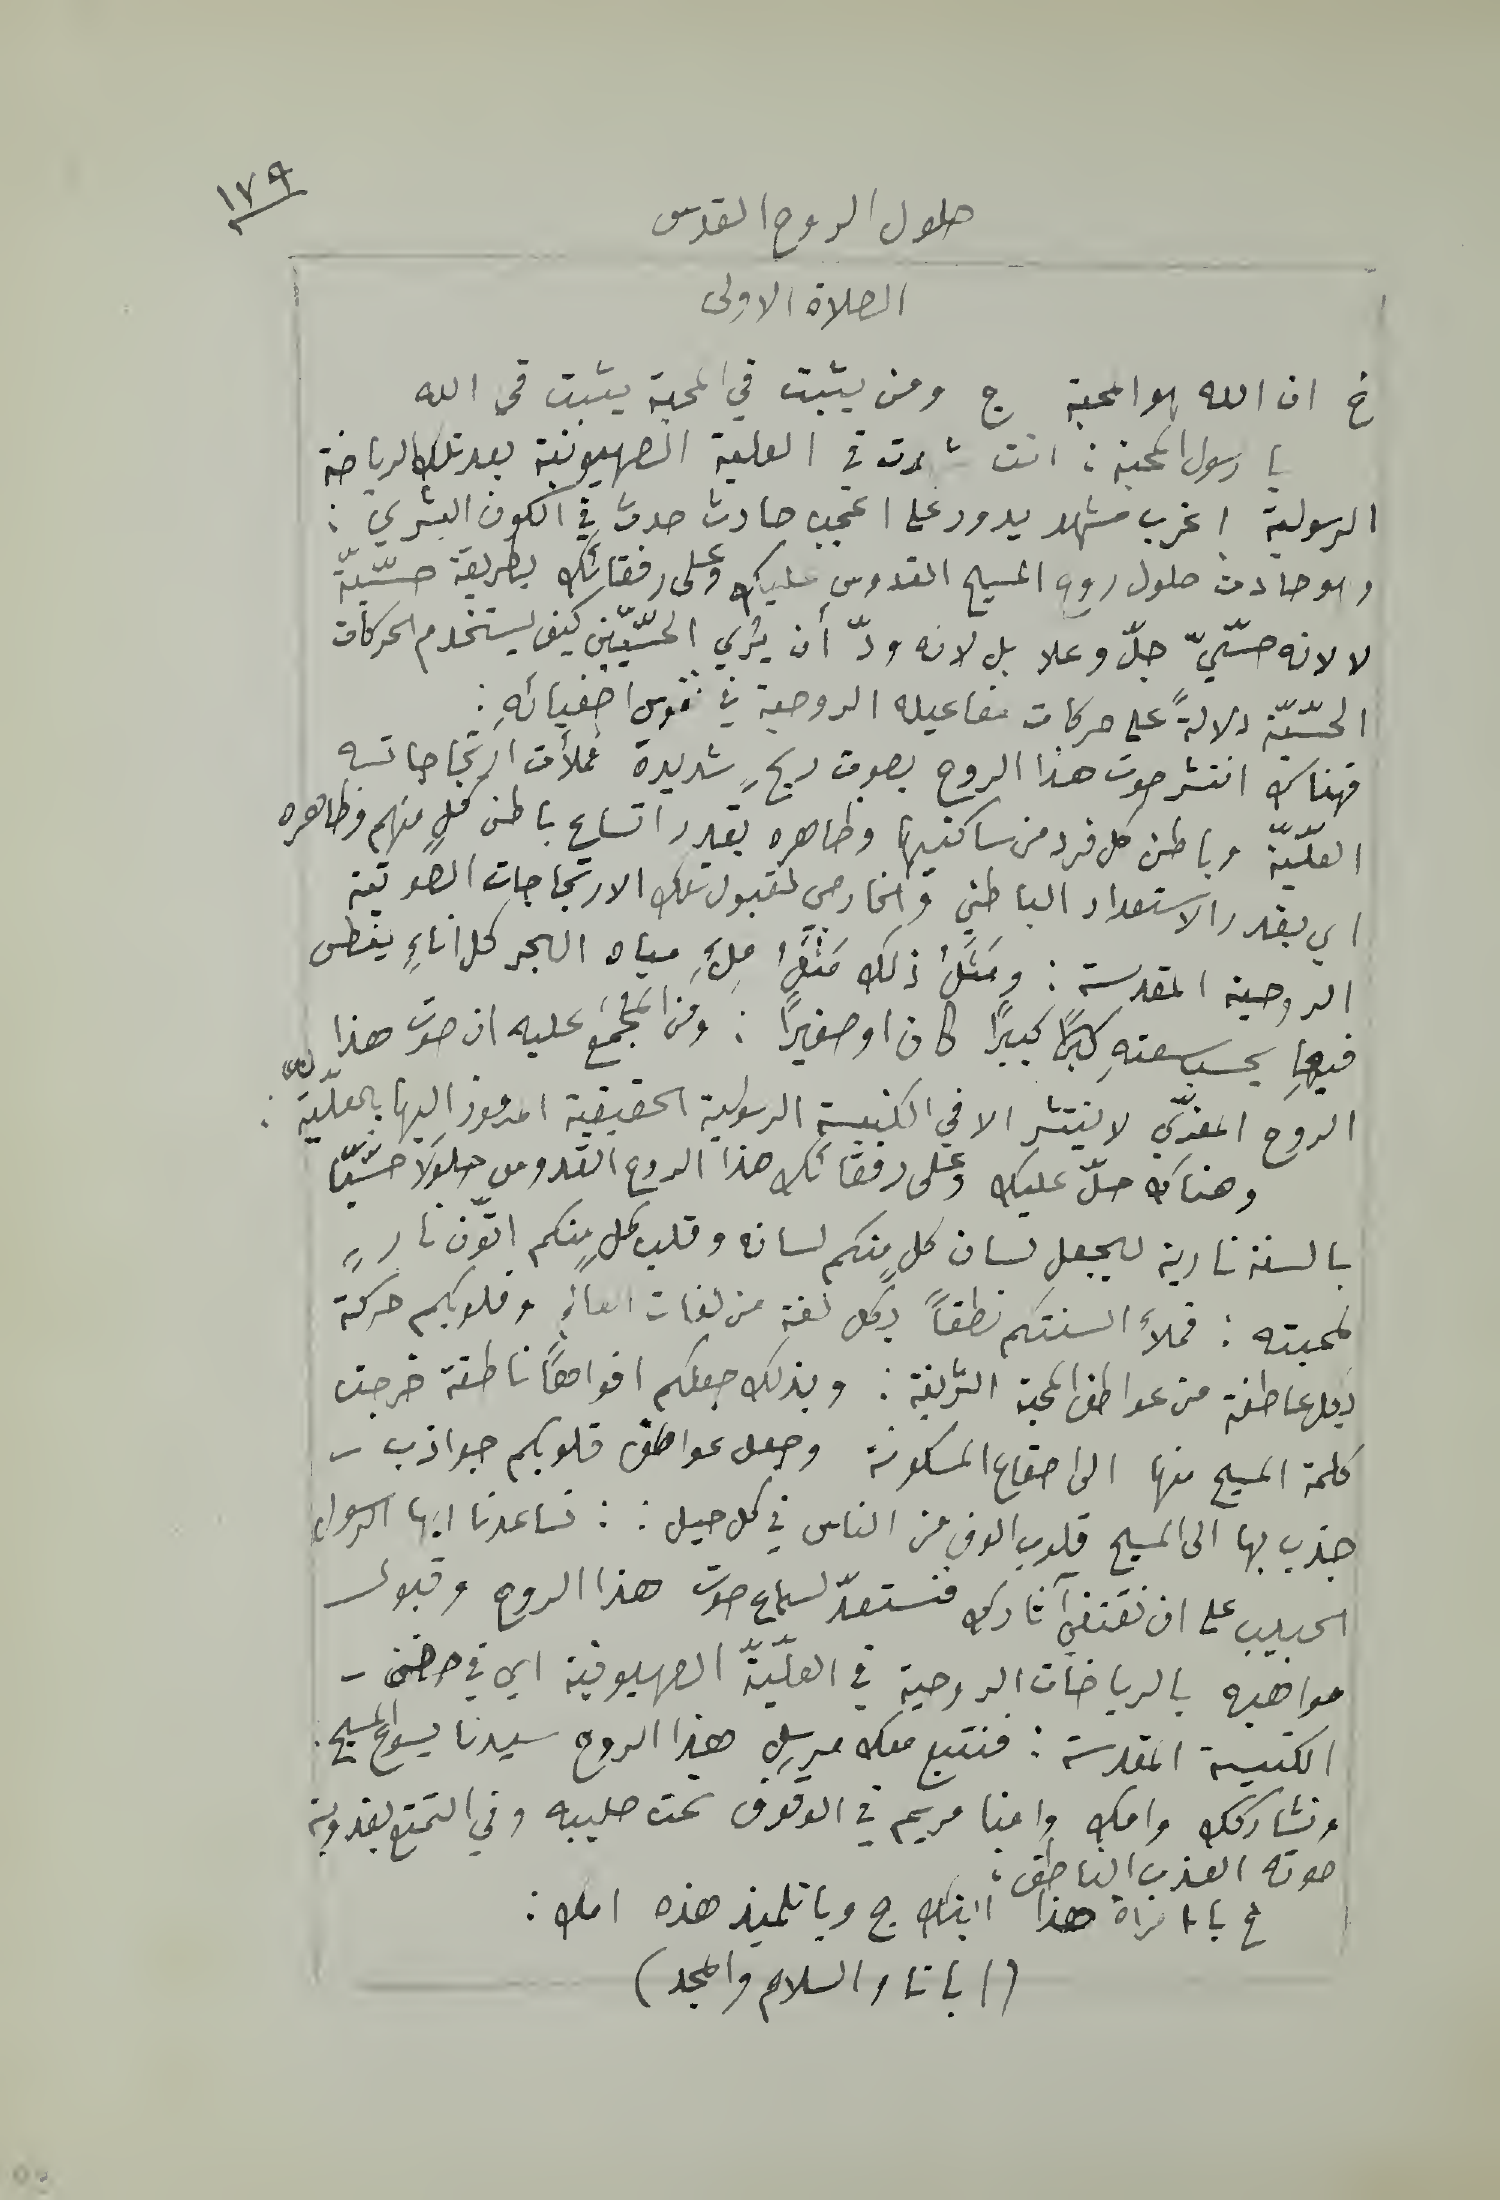 ١٧٩
حلول الروح القدس
الصلاة الاولى
خ ان الله هو المحبة ج ومن يثبت في المحبة يثبت في الله
يا رسول المحبة : انت شهدت في العلية الصهيونية بعد تلك الرياضة
الرسولية اغرب مشهد يدور على اعجب حادث حدث في الكون البشري :
وهو حادث حلول روح المسيح القدوس عليك وعلى رفقائك بطريقة حسّيّة
لا لانه حسّيّ جلّ وعلا بل لانه ودّ أن يُري الحسّيّين كيف يستخدم الحركات
الحسّيّة دلالةً على حركات مفاعيله الروحية في نفوس اصفيائهِ :
فهناك انتشر صوت هذا الروح بصوت ريحٍ شديدة فملأت ارتجاجاته
العلّيّة وباطن كل فرد من ساكنيها وظاهره بقدر اتساع باطن كلٍ منهم وظاهره
اي بقدر الاستعداد الباطني والخارجي لقبول تلك الارتجاجات الصوتية
الروحية المقدسة : ومَثَلُ ذلك مَثَلُ مِلءِ مياه البحر كل اناءٍ يغطس
فيها بحسب سعتهِ كبيرًا كان او صغيرًا : ومن المُجْمَعِ عليه ان صوت هذا
الروح المعزّي لا ينتشر الا في الكنيسة الرسولية الحقيقية المرموز اليها بالعلّيّة :
وهناك حلّ عليك وعلى رفقائك هذا الروح القدوس حلولًا حسّيًّا
بالسنة نارية ليجعل لسان كلٍ منكم لسانه وقلب كلٍ منكم اتّون نارٍ
لمحبته : فملأ السنتكم نطقاً بكل لغة من لغات العالم وقلوبكم حركة
بكل عاطفة من عواطف المحبة الشريفة : وبذلك جعلكم افواهًا ناطقة خرجت
كلمة المسيح منها الى اصقاع المسكونة وجعل عواطف قلوبكم جواذب –
جذب بها الى المسيح قلوب الوف من الناس في كل جيل : : فساعدنا ايها الرسول
الحبيب على ان نقتفي آثارك فنستعدّ لسماع صوت هذا الروح وقبول
مواهبه بالرياضات الروحية في العلّيّة الصهيونية اي في حضن –
الكنيسة المقدسة : فنتبع معك مرسِل هذا الروح سيدنا يسوع المسيح :
ونشاركك وامك وامنا مريم في الوقوف تحت صليبه وفي التمتع بعذوبة
صوته العذب الناطق :
خ يا امرأة هذا ابنك ج ويا تلميذ هذه امك :
(ابانا والسلام والمجد)